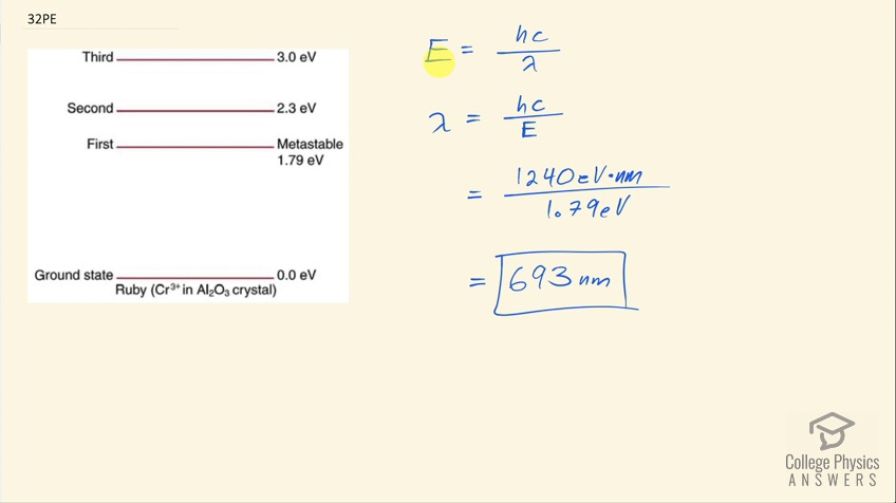 32PE
Third 3.0 eV
Second 2.3 eV
First Metastable
1.79 eV
Ground state 0.0 eV
Ruby (Cr³⁺ in Al₂O₃ crystal)
E = hc / λ
λ = hc / E
= 1240 eV·nm / 1.79 eV
= 693 nm
College Physics
ANSWERS